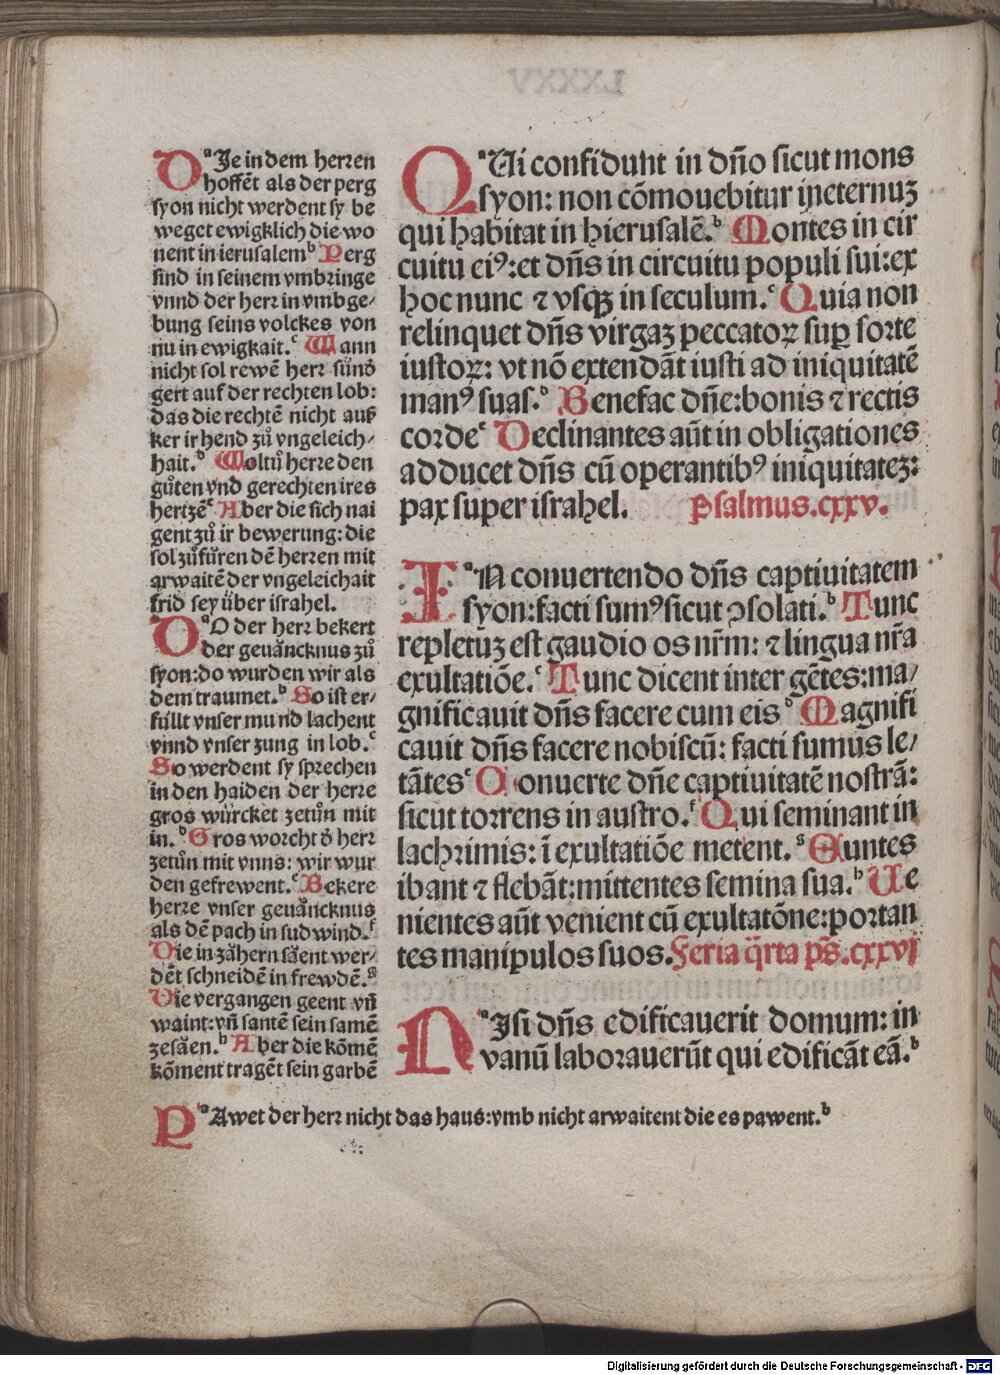 Die in dem herren
hoffēt als der perg
syon nicht werdent sy be
weget ewigklich die wo
nent in ierusalem b Perg
sind in seinem vmbringe
vnnd der herr in vmbge/
bung seins volckes von
nu in ewigkait. c Wann
nicht sol rewē herr sūnd
gert auf der rechten lob:
das die rechtē nicht auß
ker ir hend zů vngeleich/
hait. d Woltu herre den
gůten vnd gerechten ires
hertzē e Aber die sich nai
gent zů ir bewerung: die
sol zůfůren dē herren mit
arwaitē der vngeleichait
frid sey über israhel.
DO der herr bekert
der geuåncknus zů
syon: do wurden wir als
dem traumet. b So ist er/
füllt vnser mund lachent
vnnd vnser zung in lob. c
So werdent sy sprechen
in den haiden der herre
gros würcket zetůn mit
in. d Gros worcht d̕ herr
zetůn mit vnns: wir wur
den gefrewent. e Bekere
herre vnser geuåncknus
als dē pach in sudwind. f
Die in zåhern såent wer/
dēt schneidē in frewdē. g
Die vergangen geent vñ
waint: vñ santē sein samē
zesåen. h Aber die kōmē
kōment tragēt sein garbē
QUi confidunt in dño sicut mons
syon: non cōmouebitur ineternuꝫ
qui habitat in hierusalē. b Montes in cir
cuitu eiꝰ: et dñs in circuitu populi sui: ex
hoc nunc ⁊ vsqꝫ in seculum. c Quia non
relinquet dñs virgaꝫ peccatoꝝ suꝑ sorte
iustoꝝ: vt nō extendāt iusti ad iniquitatē
manꝰ suas. d Benefac dñe: bonis ⁊ rectis
corde e Declinantes aūt in obligationes
adducet dñs cū operantibꝰ iniquitateꝫ:
pax super israhel. Psalmus. cxxv.
IN conuertendo dñs captiuitatem
syon: facti sumꝰ sicut ꝯsolati. b Tunc
repletūꝫ est gaudio os nr̄m: ⁊ lingua nr̄a
exultatiōe. c Tunc dicent inter gētes: ma/
gnificauit dñs facere cum eis d Magnifi
cauit dñs facere nobiscū: facti sumus le/
tātes e Conuerte dñe captiuitatē nostrā:
sicut torrens in austro. f Qui seminant in
lachrimis: ī exultatiōe metent. g Euntes
ibant ⁊ flebāt: mittentes semina sua. h Ue
nientes aūt venient cū exultatōne: portan
tes manipulos suos. Feria q̄rta ps̄. cxxvj
NIsi dñs edificauerit domum: in
vanū laborauerūt qui edificāt eā. b
PAwet der herr nicht das haus: vmb nicht arwaitent die es pawent. b
Digitalisierung gefördert durch die Deutsche Forschungsgemeinschaft - DFG